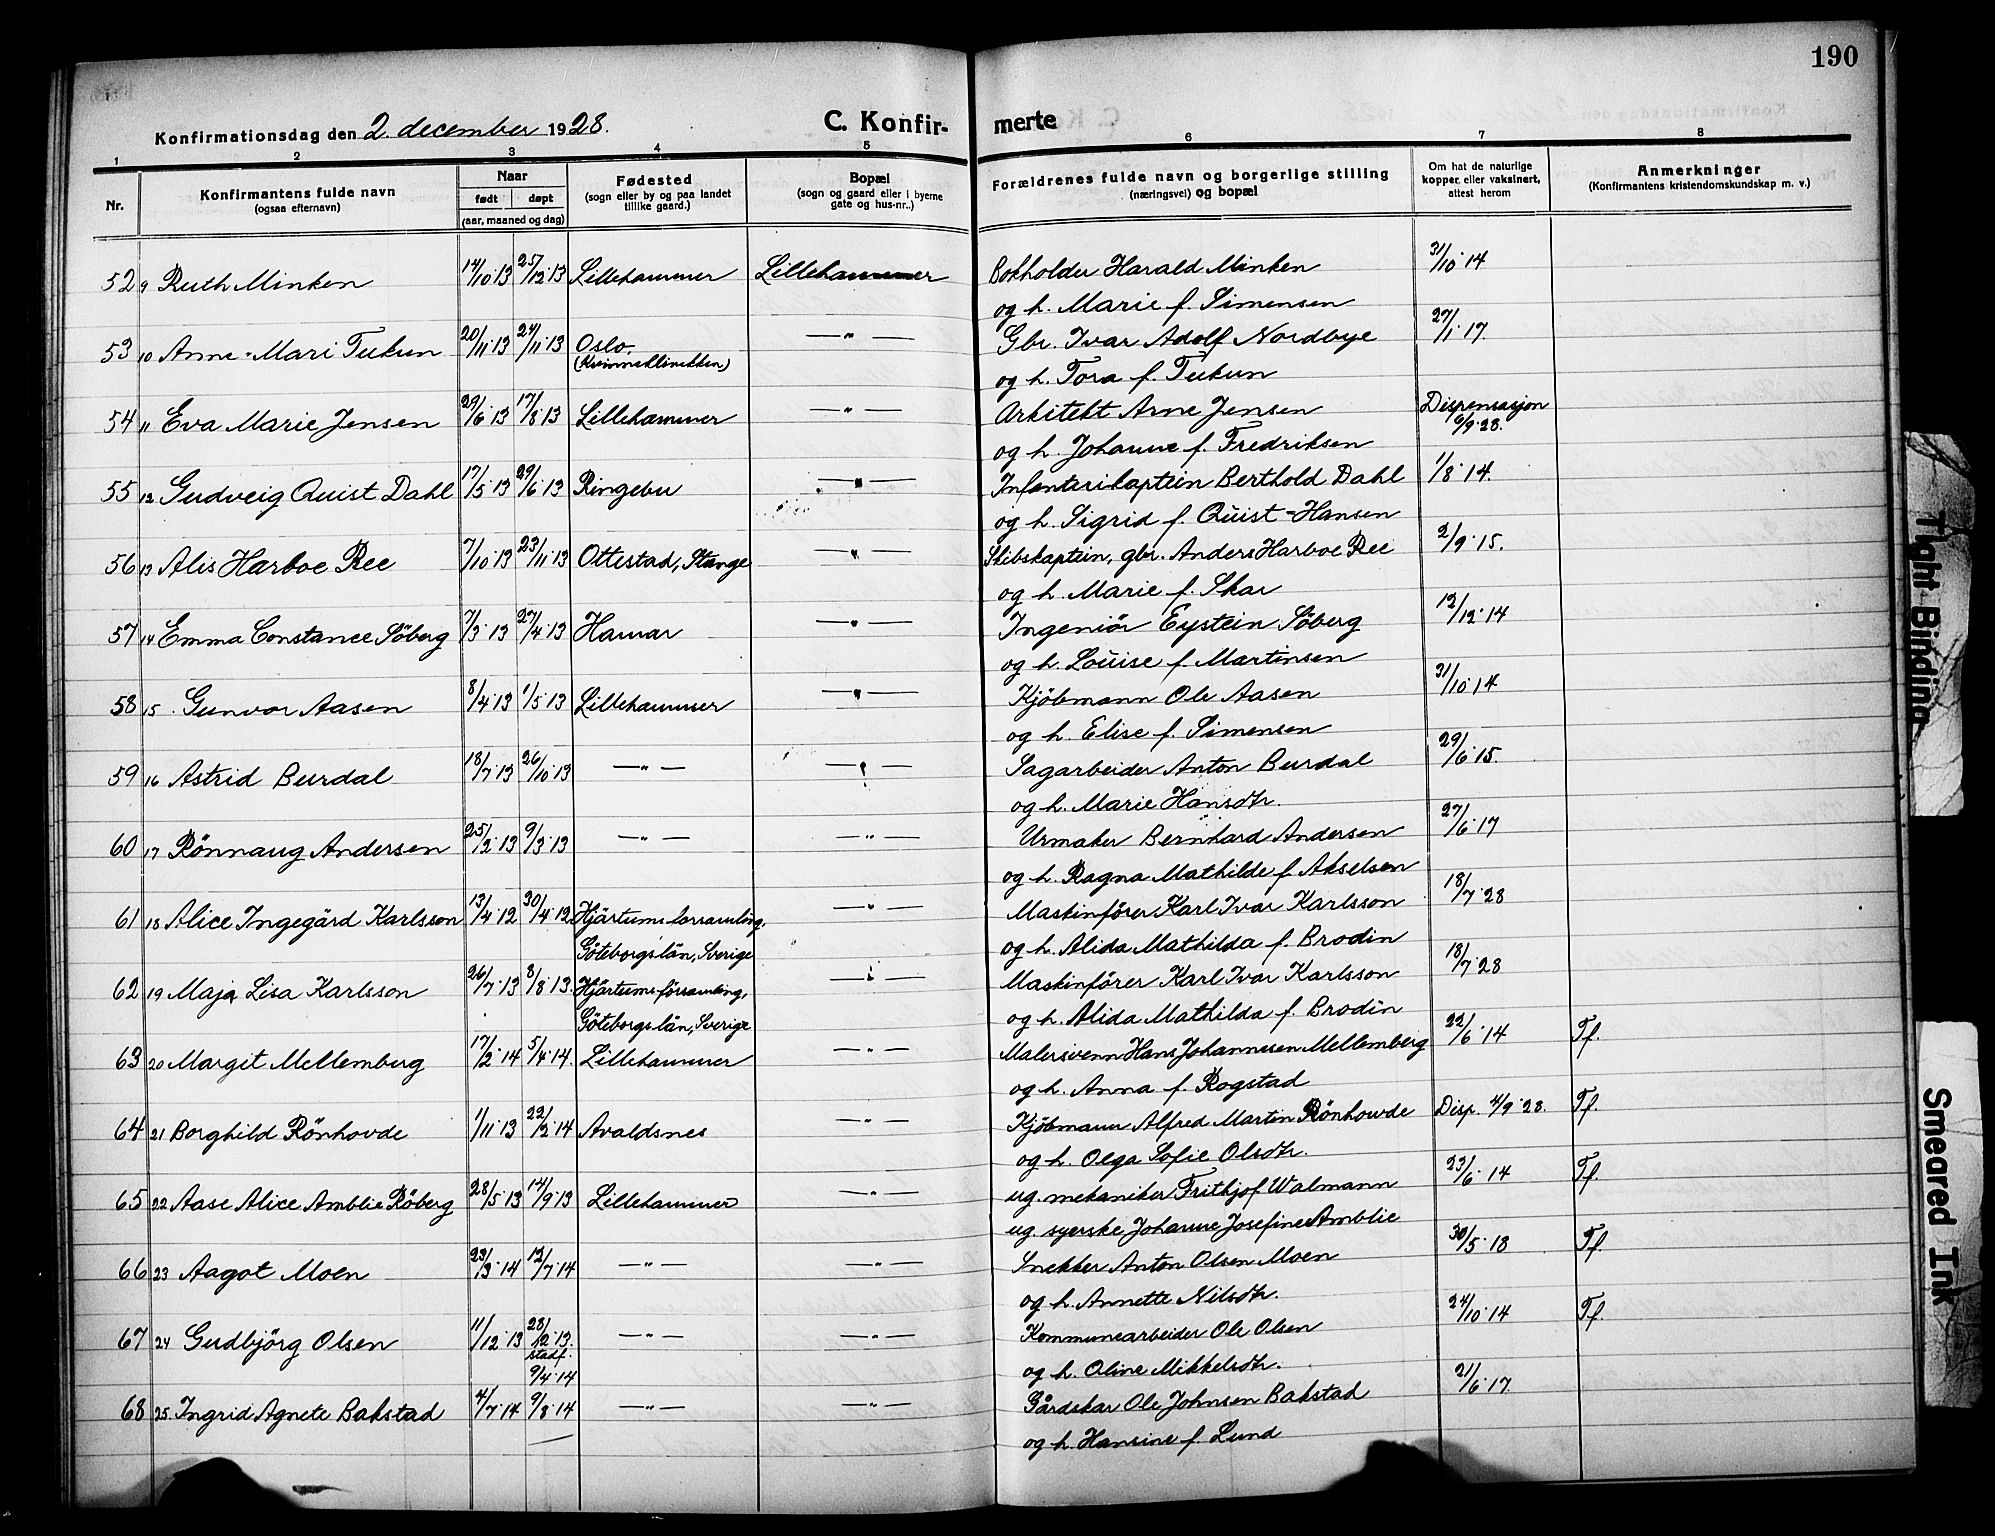 190
Konfirmationsdag den 2. december 1928.
C. Konfir-merte
1 2 3 4 5 6 7 8
Nr.
Konfirmantens fulde navn
(ogsaa efternavn)
Naar
født døpt
(aar, maaned og dag)
Fødested
(sogn eller by og paa landet
tillike gaard.)
Bopæl
(sogn og gaard eller i byerne
gate og hus-nr..)
Forældrenes fulde navn og borgerlige stilling
(næringsvei) og bopæl
Om hat de naturlige
kopper, eller vaksinert,
attest herom
Anmerkninger
(Konfirmantens kristendomskundskap m. v.)
52 9 Ruth Minken 14/10·13 25/12·13 Lillehammer Lillehammer Bokholder Harald Minken 31/10·14
og h. Marie f. Simensen
53 10 Anne-Mari Tukun 20/11·13 24/11·13 Oslo, —"— Gbr. Ivar Adolf Nordbye 27/1·17.
(Kvinneklinikken)
og h. Tora f. Tukun
54 11 Eva Marie Jensen 29/6·13 17/8·13 Lillehammer —"— Arkitekt Arne Jensen Dispensasjon
6/9·28.
og h. Johanne f. Fredriksen
55 12 Gudveig Quist Dahl 17/5·13 29/6·13 Ringebu —"— Infanterikaptein Berthold Dahl 1/8·14.
og h. Sigrid f. Quist-Hansen
56 13 Alis Harboe Ree 7/10·13 23/11·13 Ottestad, Stange —"— Skibskaptein, gbr. Anders Harboe Ree 2/9·15.
og h. Marie f. Skar
57 14 Emma Constance Söberg 7/3·13 27/4·13 Hamar —"— Ingeniör Eystein Söberg 12/12·14
og h. Louise f. Martinsen
58 15 Gunvor Aasen 8/4·13 1/5·13 Lillehammer —"— Kjöbmann Ole Aasen 31/10·14
og h. Elise f. Simensen
59 16 Astrid Burdal 18/7·13 26/10·13 —"— —"— Sagarbeider Anton Burdal 29/6·15.
og h. Marie Hansdtr.
60 17 Rönnaug Andersen 25/2·13 9/3·13 —"— —"— Urmaker Bernhard Andersen 27/6·17
og h. Ragna Mathilde f. Akselsen
61 18 Alice Ingegärd Karlsson 13/4·12 30/4·12 Hjärtums forsamling, —"— Maskinförer Karl Ivar Karlsson 18/7·28
Göteborgs län, Sverige og h. Alida Mathilda f. Brodin
62 19 Maja Lisa Karlsson 26/7·13 8/8·13. Hjärtums församling, —"— Maskinförer Karl Ivar Karlsson 18/7·28
Göteborgs län, Sverige og h. Alida Mathilda f. Brodin
63 20 Marget Mellemberg 17/2·14 5/4·14. Lillehammer —"— Malersvenn Hans Johannesen Mellemberg 22/6·14 Tf.
og h. Anna f. Rogstad
64 21 Borghild Rönhovde 1/11·13 22/2·14 Avaldsnes —"— Kjöbmann Alfred Martin Rönhovde Disp. 4/9·28. Tf.
og h. Olga Sofie Olsdtr.
65 22 Aase Alice Amblie Röberg 28/5·13 14/9·13 Lillehammer —"— ug. mekaniker Frithjof Walmann 23/6·14 Tf.
ug. syerske Johanne Josefine Amblie
66 23 Aagot Moen 23/3·14 12/7·14 —"— —"— Snekker Anton Olsen Moen 30/5·18 Tf.
og h. Annette Nilsdtr.
67 24 Gudbjörg Olsen 11/12·13 28/12·13. —"— —"— Kommunearbeider Ole Olsen 24/10·14 Tf.
stadf.
9/4·14 og h. Oline Mikkelsdtr.
68 25. Ingrid Agnete Bakstad 4/7·14 9/8·14 —"— —"— Gårdskar Ole Johnsen Bakstad 21/6·17.
og h. Hansine f. Lund
Tight Binding
Smeared Ink